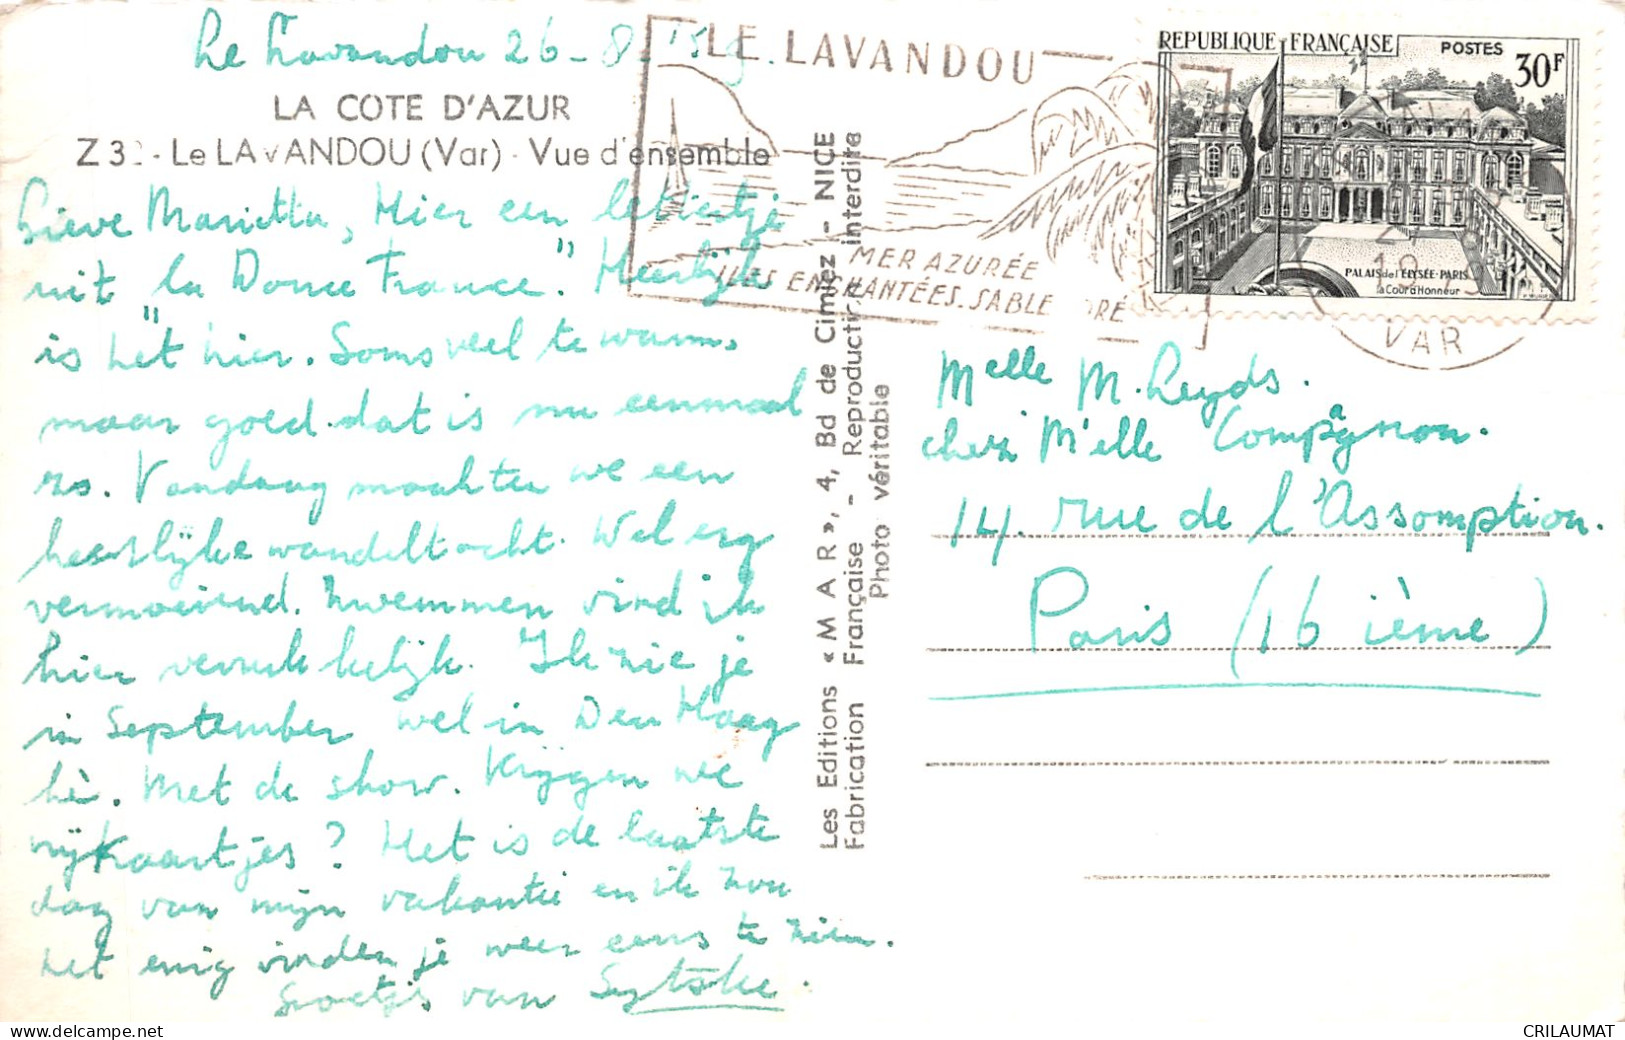 Le Lavandou 26-8-
LA COTE D'AZUR
Z 3 - Le LAVANDOU (Var) - Vue d'ensemble
Lieve Marietta, Hier een
uit "la Douce France". Heerlijk
is het hier. Soms veel te warm,
maar goed. dat is nu eenmaal
zo. Vandaag maakten we een
heerlijke wandeltocht. Wel erg
vermoeiend. Zwemmen vind ik
hier verrukkelijk. Ik zie je
in September wel in Den Haag
hè. Met de show. Krijgen we
vrijkaartjes? Het is de laatste
dag van mijn vakantie en ik zou
het enig vinden je weer eens te zien.
Groetjes van Sytske.
LE LAVANDOU
MER AZURÉE
ILES ENCHANTÉES. SABLE DORÉ
VAR
REPUBLIQUE FRANÇAISE
POSTES
30F
PALAIS de l'ELYSÉE-PARIS
la Cour d'Honneur
Les Editions «MAR», 4, Bd de Cimiez - NICE
Fabrication Française - Reproduction interdite
Photo véritable
Melle M. Leyds.
chez M'elle Compagnon.
14. rue de l'Assomption.
Paris (16 ième)
CRILAUMAT